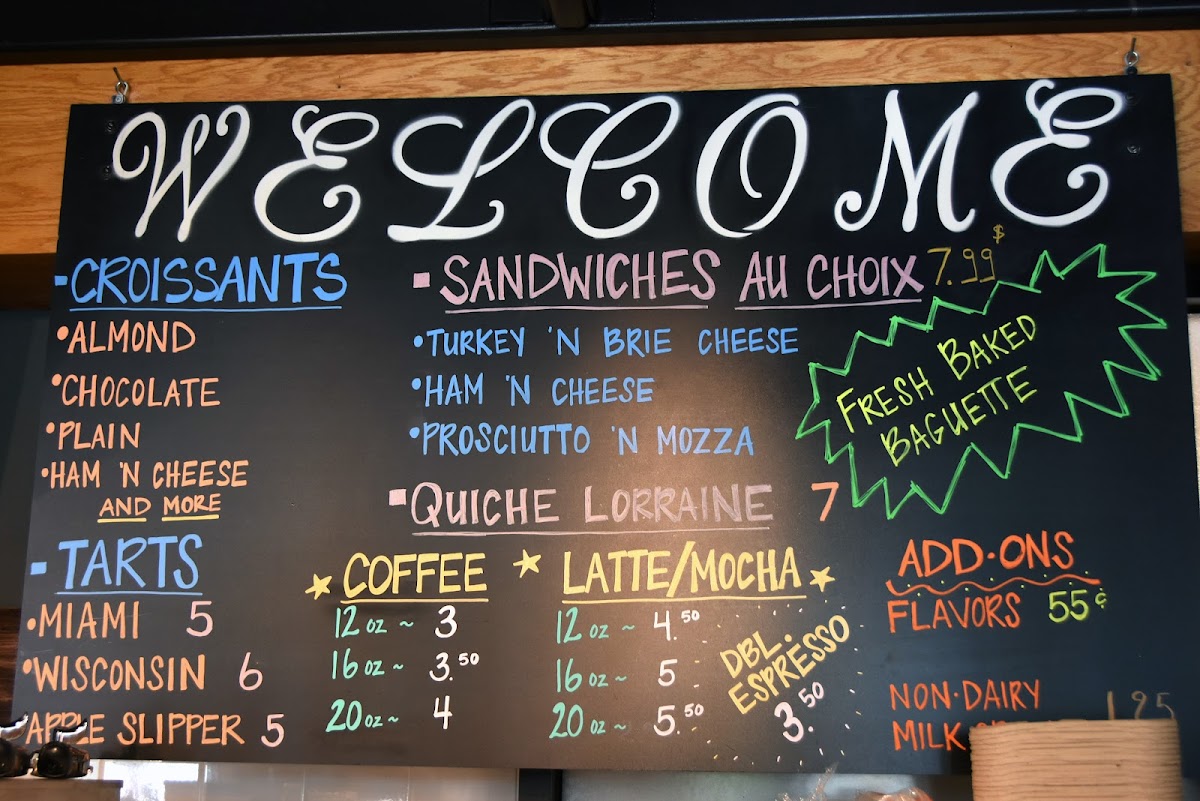 WELCOME
-CROISSANTS
•ALMOND
•CHOCOLATE
•PLAIN
•HAM 'N CHEESE
AND MORE
-TARTS
•MIAMI 5
•WISCONSIN 6
•APPLE SLIPPER 5
-SANDWICHES AU CHOIX 7.99$
•TURKEY 'N BRIE CHEESE
•HAM 'N CHEESE
•PROSCIUTTO 'N MOZZA
FRESH BAKED
BAGUETTE
-QUICHE LORRAINE 7
COFFEE
12 oz ~ 3
16 oz ~ 3.50
20 oz ~ 4
LATTE/MOCHA
12 oz ~ 4.50
16 oz ~ 5
20 oz ~ 5.50
DBL.
ESPRESSO
3.50
ADD•ONS
FLAVORS 55¢
NON•DAIRY
MILK